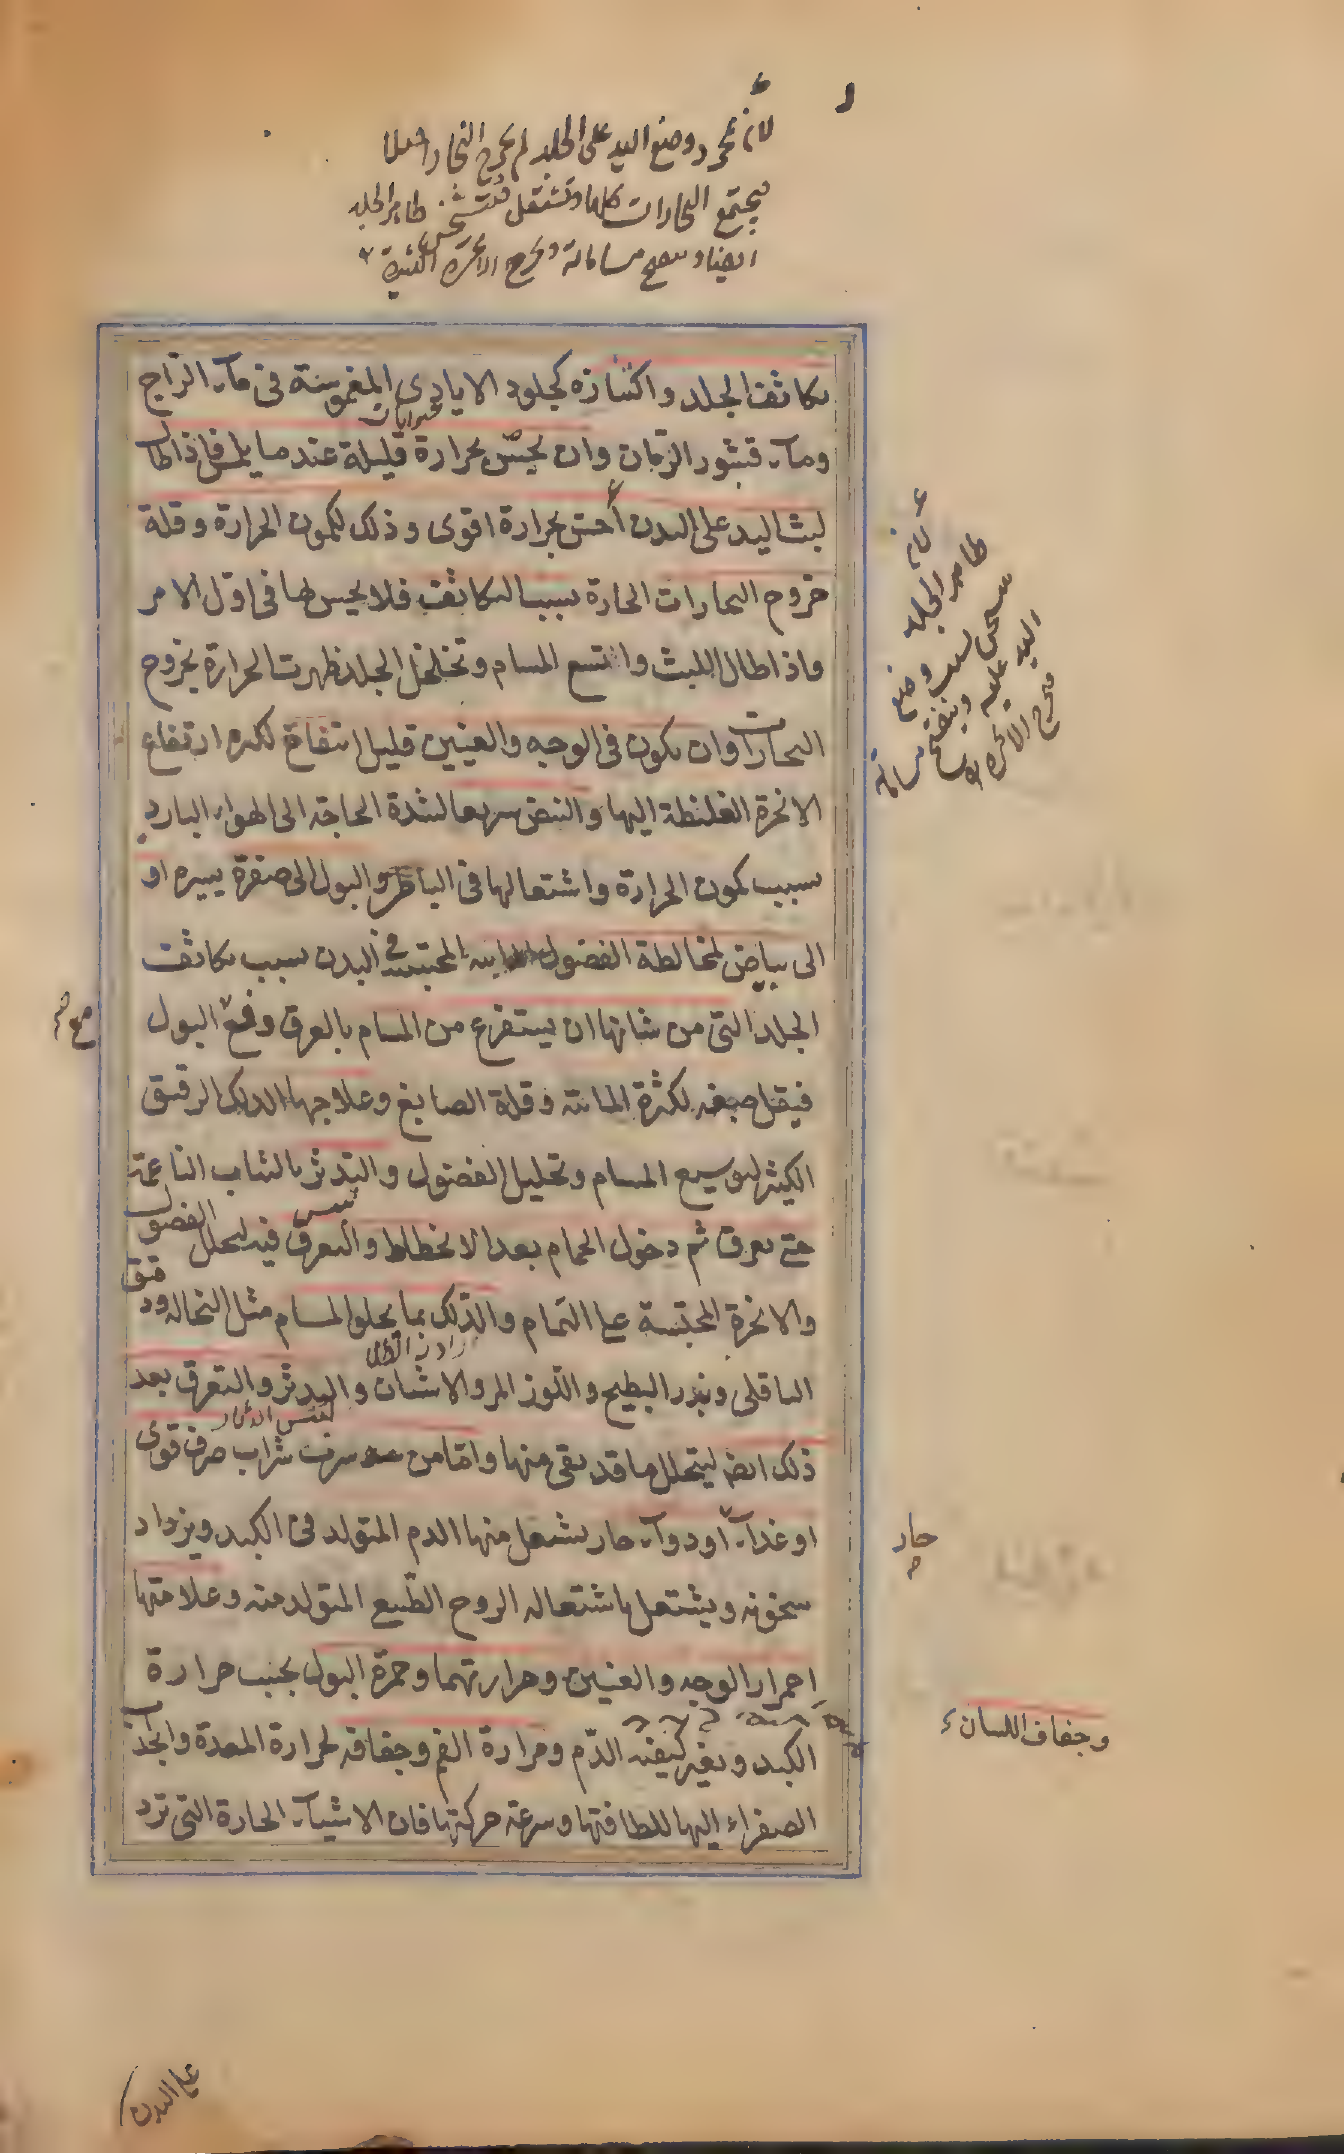 لانه بمجرد وضع اليد على الجلد لم يخرج البخار اصلا
فيجتمع البخارات كلها وتشتعل فيتسخن ظاهر الجلد
ايضا وينفتح مساماته ويخرج الابخرة الكثيرة
تكاثف الجلد واكتنازه كجلود الايادى المغموسة فى ماء الزاج
وماء قشور الرمان وان يحس بحرارة قليلة عند ما يلمس فاذا طال
لبث اليد على البدن أحس بحرارة اقوى وذلك لكمون الحرارة وقلة
خروج البخارات الحارة بسبب التكاثف فلا يحس لها فى اول الامر
واذا طال اللبث واتسع المسام وتخلخل الجلد ظهرت الحرارة بخروج
البخارات وان يكون فى الوجه والعينين قليل انتفاخ لكثرة ارتفاع
الابخرة الغليظة اليها والنبض سريعا لشدة الحاجة الى الهواء البارد
بسبب كمون الحرارة واشتعالها فى الباطن والبول الى صفرة يسيره او
الى بياض لمخالطة الفضول المحتبسة فى البدن بسبب تكاثف
الجلد التى من شانها ان يستفرغ من المسام بالعرق وفع البول
فيقل صبغه لكثرة المائية وقلة الصابغ وعلاجها الدلك الرقيق
الكثير لتوسيع المسام وتحليل الفضول والتدثر بالثياب الناعمة
حتى يعرق ثم دخول الحمام بعد الانحطاط والتعرق فيه لتحلل الفضول
والابخرة المحتبسة على التمام والدلك بما يجلو المسام مثل النخاله ودقيق
الباقلى وبزر البطيخ واللوز المر والاشنان والتدثر والتعرق بعد
ذلك ايضا ليتحلل ما قد بقى منها واما من شراب صرف قوى
او غذاء أو دواء حار يشتعل منها الدم المتولد فى الكبد ويزداد
سخونه ويشتعل باشتعاله الروح الطبيعى المتولد منه وعلامتها
احمرار الوجه والعينين وحرارتهما وحمرة البول بحسب حرارة
الكبد وتغير كيفية الدم ومرارة الفم وجفافه لحرارة المعدة وانجذاب
الصفراء اليها للطافتها وسرعة حركتها فان الاشياء الحارة التى ترد
لان
ظاهر الجلد
يسخن بسبب وضع
اليد عليه وينفتح مساماته
فيخرج الابخرة
حار
وجفاف اللسان
على البدن